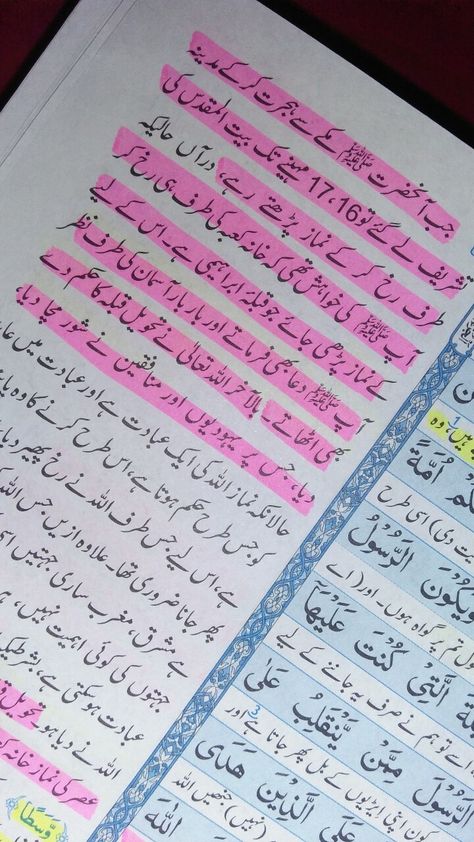 جب آنحضرت ﷺ مکے سے ہجرت کر کے مدینہ
شریف لے گئے تو 16، 17 مہینے تک بیت المقدس کی
طرف رخ کر کے نماز پڑھتے رہے، درآں حالیکہ
آپ ﷺ کی خواہش تھی کہ خانہ کعبہ کی طرف ہی رخ کر
کے نماز پڑھی جائے جو قبلۂ ابراہیمی ہے۔ اس کے لیے
آپ ﷺ دعا بھی فرماتے اور بار بار آسمان کی طرف نظر
بھی اٹھاتے۔ بالآخر اللہ تعالیٰ نے تحویل قبلہ کا حکم دے
دیا، جس پر یہودیوں اور منافقین نے شور مچا دیا،
حالانکہ نماز اللہ کی ایک عبادت ہے اور عبادت میں عا
کو جس طرح حکم ہوتا ہے، اس طرح کرنے کا وہ پا
ہے، اس لیے جس طرف اللہ نے رخ پھیر دیا،
پھر جانا ضروری تھا۔ علاوہ ازیں جس اللہ
ہے مشرق، مغرب ساری جہتیں اسی
جہتوں کی کوئی اہمیت نہیں، ہر
عبادت ہو سکتی ہے بشرطیکہ
اللہ نے دیا ہو۔ تحویل
عصر کی نماز خانہ ک
وَسَطًا
ہیں، وہ
اُمَّةً
دی) اسی طرح
یَكُوْنَ الرَّسُوْلُ
تم پر گواہ ہوں۔ اور (اے
الَّتِيْ كُنْتَ عَلَيْهَا
تو ہم نے صرف یہ جاننے کے لیے
الرَّسُوْلَ مِمَّنْ يَّنْقَلِبُ عَلٰى
کون اپنی ایڑیوں کے بل پھر جاتا ہے 3 اور
عَلَى الَّذِيْنَ هَدَى
(نہیں) جنھیں اللہ
اللّٰهَ